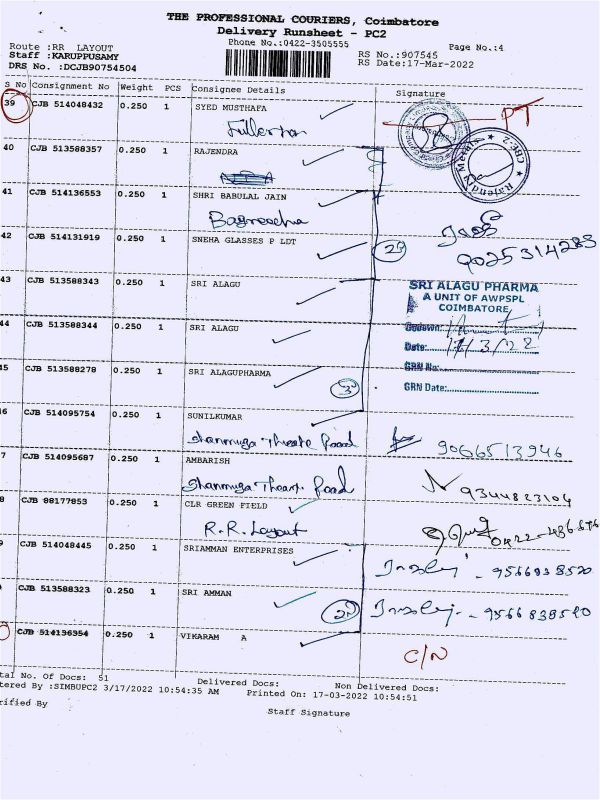 THE PROFESSIONAL COURIERS, Coimbatore
Delivery Runsheet - PC2
Phone No.:0422-3505555
Page No.:4
Route :RR LAYOUT
Staff :KARUPPUSAMY
DRS No. :DCJB90754504
RS No.:907545
RS Date:17-Mar-2022
S No Consignment No Weight PCS Consignee Details Signature
39 CJB 514048432 0.250 1 SYED MUSTHAFA
PT
Fullerton
40 CJB 513588357 0.250 1 RAJENDRA
41 CJB 514136553 0.250 1 SHRI BABULAL JAIN
42 CJB 514131919 0.250 1 SNEHA GLASSES P LDT
9025314283
43 CJB 513588343 0.250 1 SRI ALAGU
SRI ALAGU PHARMA
A UNIT OF AWPSPL
COIMBATORE
44 CJB 513588344 0.250 1 SRI ALAGU
Godown:
Date: 17/3/22
GRN No:
GRN Date:
45 CJB 513588278 0.250 1 SRI ALAGUPHARMA
6 CJB 514095754 0.250 1 SUNILKUMAR
Shanmuga Theatre Road 9066513946
7 CJB 514095687 0.250 1 AMBARISH
Shanmuga Theatre Road 9344823104
8 CJB 88177853 0.250 1 CLR GREEN FIELD
R.R. Layout
9 CJB 514048445 0.250 1 SRIAMMAN ENTERPRISES
- 9566838520
CJB 513588323 0.250 1 SRI AMMAN
- 9566838520
CJB 514136354 0.250 1 VIKARAM A
C/N
tal No. Of Docs: 51 Delivered Docs: Non Delivered Docs:
tered By :SIMBUPC2 3/17/2022 10:54:35 AM Printed On: 17-03-2022 10:54:51
rified By
Staff Signature